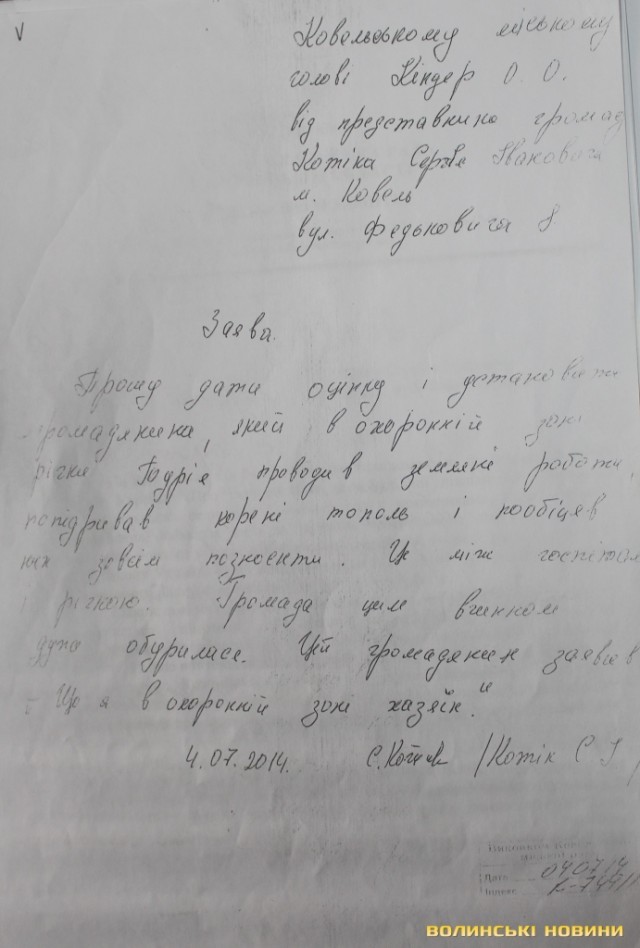 V
Ковельському міському
голові Кіндер О. О.
від представника громад
Котіка Сергія Івановича
м. Ковель
вул. Федьковича 8
Заява.
Прошу дати оцінку і установити
громадянина, який в охоронній зоні
річки Турія проводив земляні роботи,
попідривав корені тополь і пообіцяв
їх зовсім познести. Це між госпіталем
і річкою. Громада цим вчинком
дуже обурилася. Цей громадянин заявив
- Що я в охоронній зоні хазяїн."
4.07.2014. С.Котік /Котік С І/
Дата 040714
Індекс К-747/
ВОЛИНСЬКІ НОВИНИ